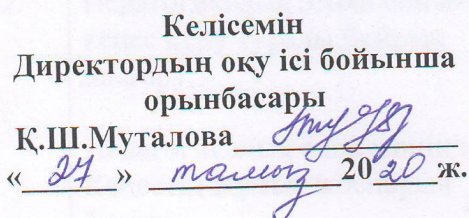 Келісемін
Директордың оқу ісі бойынша
орынбасары
Қ.Ш.Муталова
« 27 » тамыз 2020 ж.